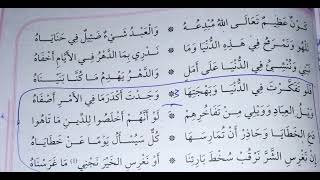 قَرْنٌ عَظِيمٌ تَعَالَى اللهُ مُبْدِعُهُ وَالْعَبْدُ شَيْءٌ ضَئِيلٌ فِي حَنَايَاهُ
نَلْهُو وَنَمْرَحُ فِي هَذِهِ الدُّنْيَا وَمَا نَدْرِي بِمَا الدَّهْرُ فِي الْأَيَّامِ أَخْفَاهُ
نَبْنِي وَنُنْشِئُ فِي الدُّنْيَا عَلَى أَمَلٍ وَالدَّهْرُ يَهْدِمُ مَا كُنَّا بَنَيْنَاهُ
فَلَوْ تَفَكَّرْتَ فِي الدُّنْيَا وَبَهْجَتِهَا وَجَدْتَ أَكْدَرَهَا فِي الْأَمْرِ أَصْفَاهُ
وَيْلُ الْعِبَادِ وَوَيْلِي مِنْ تَفَاخُرِهِمْ لَوْ أَنَّهُمْ أَخْلَصُوا لِلدِّينِ مَا تَاهُوا
دَعِ الْخَطَايَا وَحَاذِرْ أَنْ تُمَارِسَهَا كُلٌّ سَيُسْأَلُ يَوْمًا عَنْ خَطَايَاهُ
إِنْ نَغْرِسِ الشَّرَّ نَرْقُبْ سُخْطَ بَارِئِنَا أَوْ نَغْرِسِ الْخَيْرَ نَجْنِي (١) مَا غَرَسْنَاهُ